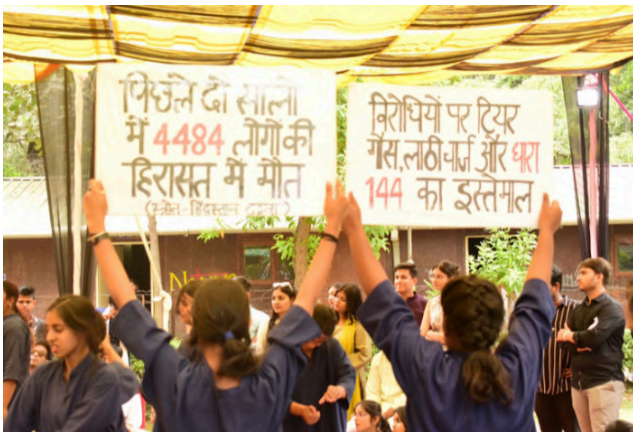 पिछले दो सालों
में 4484 लोगों की
हिरासत में मौत
(स्त्रोत - हिंदुस्तान टाइम्स)
विरोधियों पर टियर
गैस, लाठी चार्ज और धारा
144 का इस्तेमाल